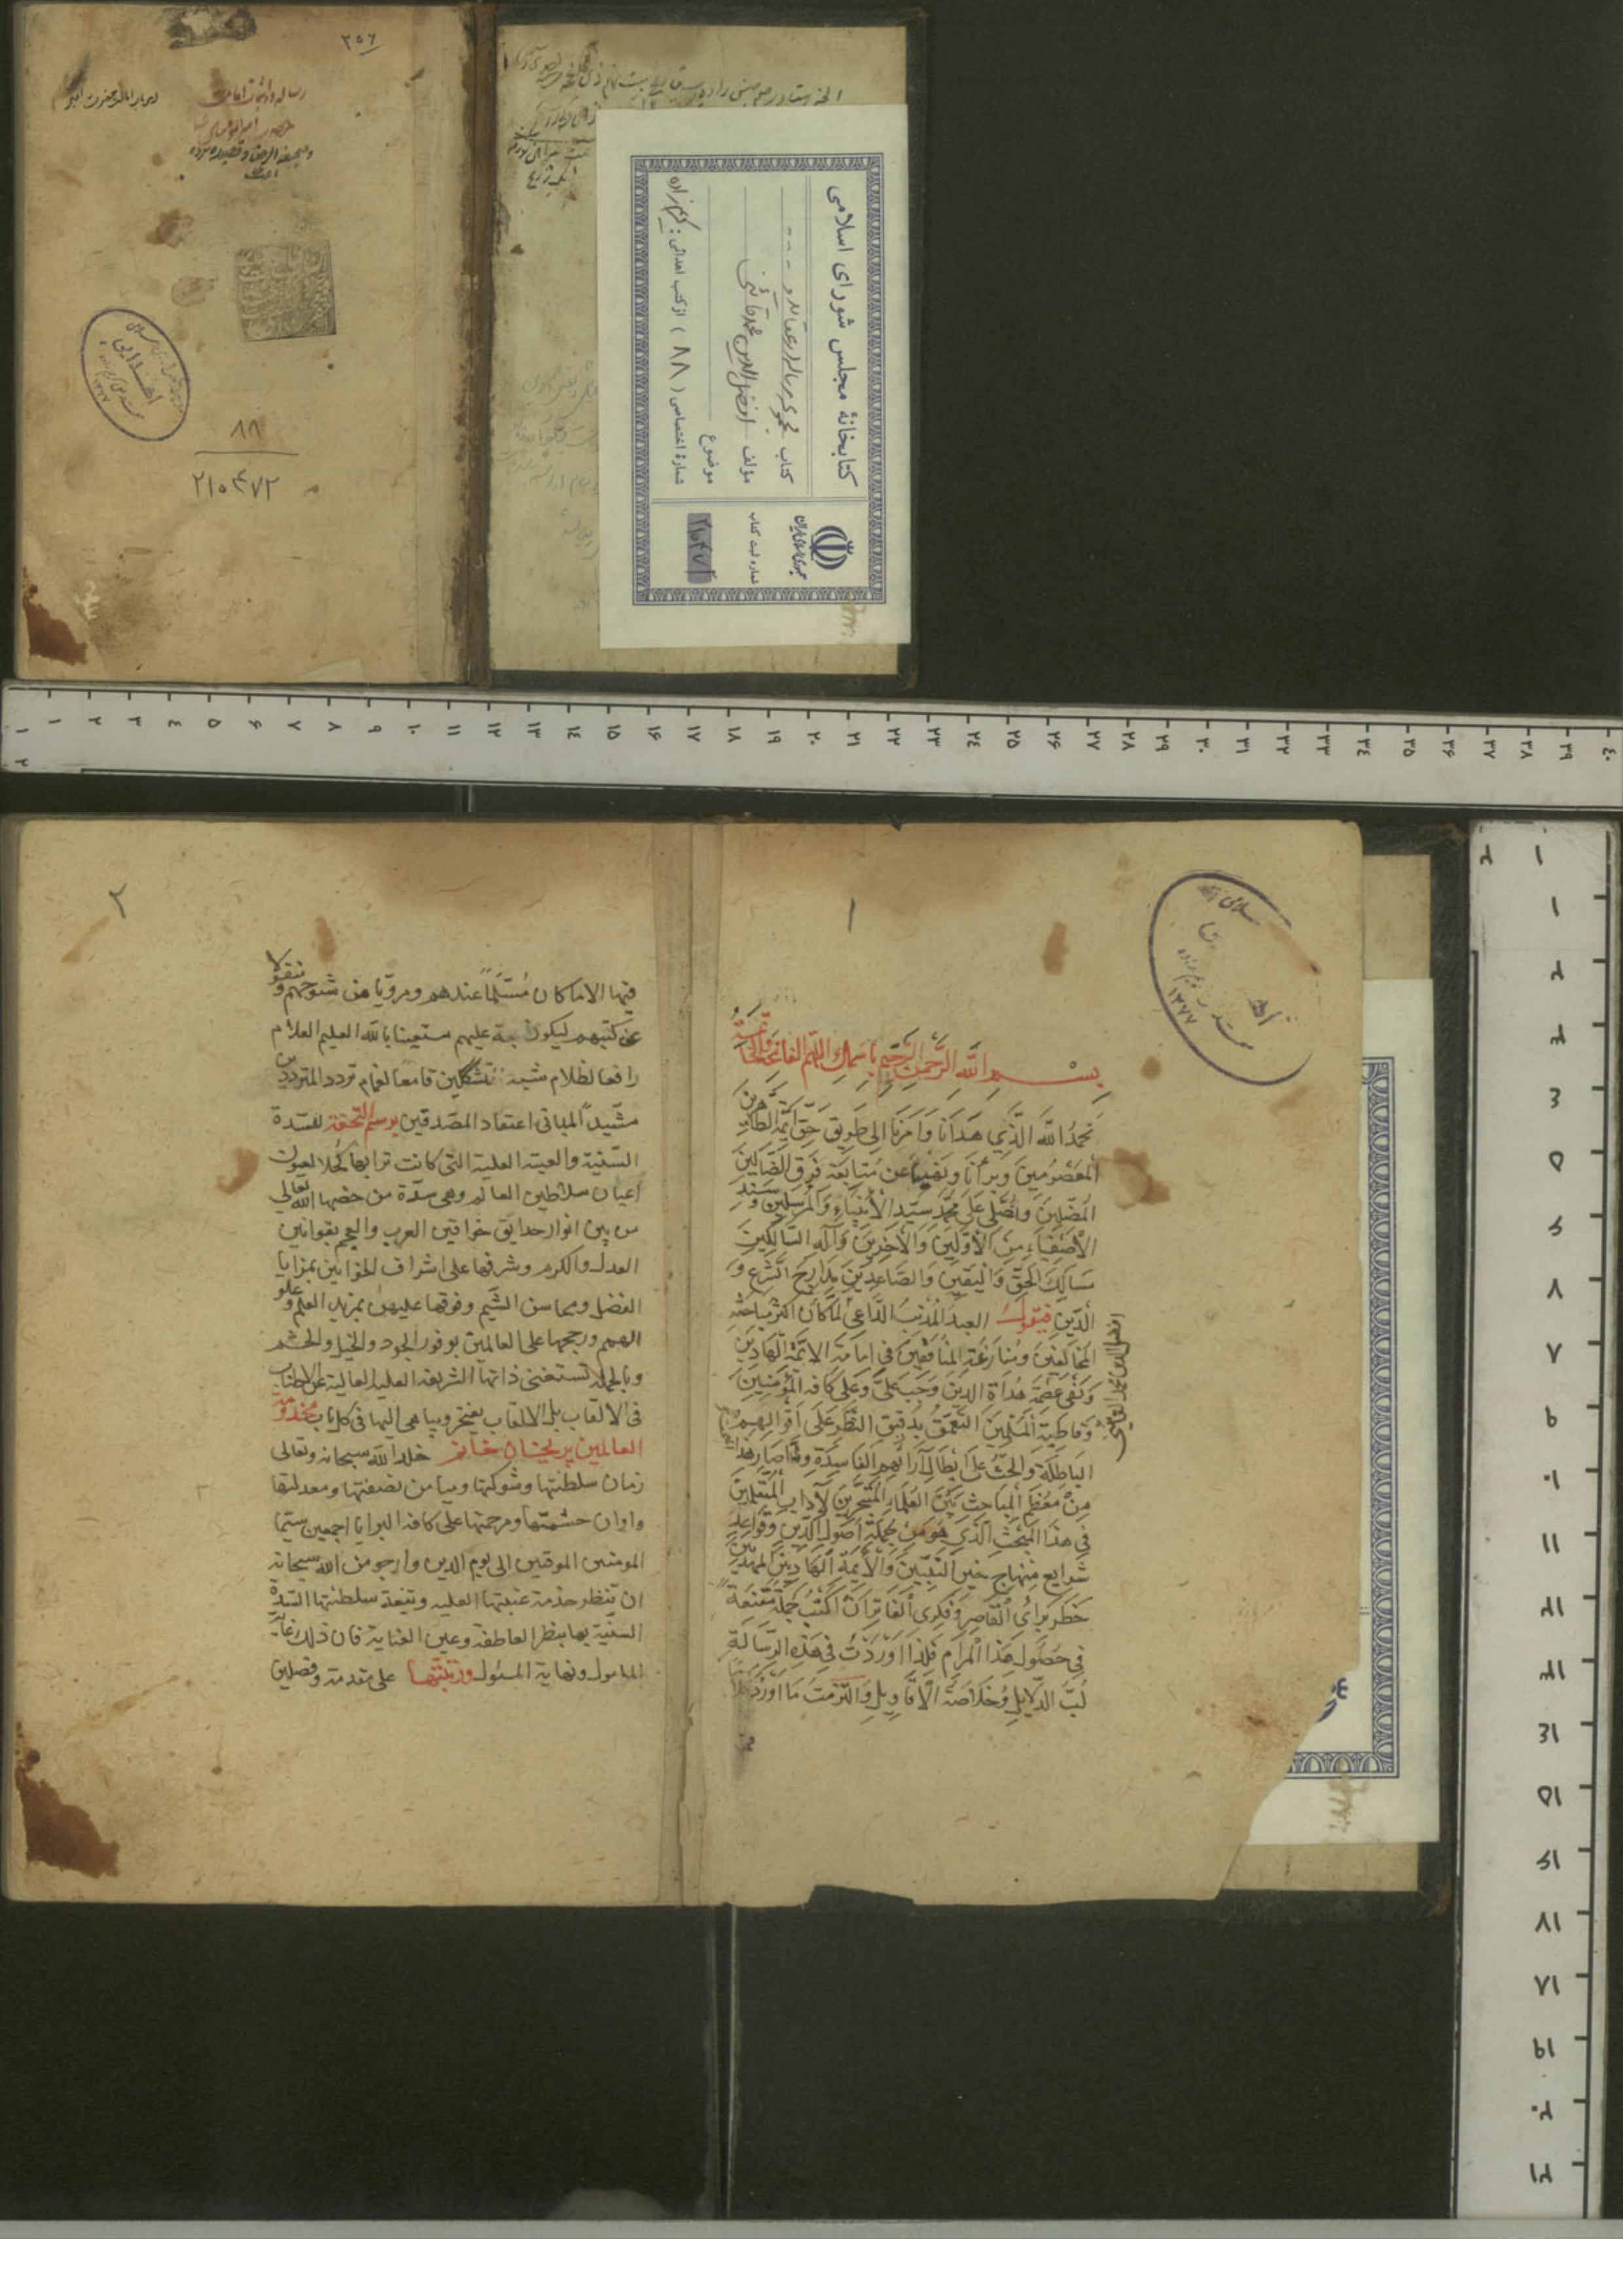 ۲۵۶
رساله در اثبات امامت
حضرت امیرالمومنین
و صحیفة الرضا و قصیده برده
۸۸
۲۱۰۴۷۲
کتابخانهٔ مجلس شورای اسلامی
کتاب مجموعه
مؤلف افضل الدین محمد قائنی
موضوع
شمارهٔ اختصاصی ( ۸۸ ) از کتب اهدائی : کریم زاده
جمهوری اسلامی ایران
شماره ثبت کتاب
۱
بسم الله الرحمن الرحيم باسمك اللهم الفاتحة والخاتمة
نَحمَدُ اللهَ الَّذِي هَدَانَا وَاَمَرَنَا الى طَرِيقِ حَقِّ اَئِمَّةِ الطَّاهِرِينَ
المَعصُومِينَ وَبَرَّأنَا وَنَهَينَا عن مُتَابَعَةِ فِرَقِ الضَّالِّينَ
المُضِلِّينَ وَنُصَلِّي عَلَى مُحَمَّدٍ سَيِّدِ الاَنبِيَاءِ وَالمُرسَلِينَ وَسَنَدِ
الاَصفِيَاءِ مِنَ الاَوَّلِينَ وَالآخِرِينَ وَآلِهِ السَّالِكِينَ
مَسَالِكَ الحَقِّ وَاليَقِينِ وَالصَّاعِدِينَ مَدَارِجَ الشَّرعِ وَ
الدِّينِ فيقول العبدُ المُذنِبُ الدَّاعي لَمَّا كَانَ اكثر مباحثة
المخالفين ومُنازعة المُنافقين في امامة الائمة الهادين
وَنَفي عِصمَةِ هُدَاةِ الدين وَجَبَ عَلَيَّ وَعَلى كافة المؤمنين
وَقاطبة المُسلِمِينَ التَّعَمُّقُ بدقيق النَّظَرِ عَلَى اَقوَالِهِم
البَاطِلَةِ وَالحَثُّ على اِبطَالِ آرَائِهِم الفَاسِدَةِ وَلَمَّا صَارَ هَذَا
مِن مُعظَمِ المَبَاحِثِ بَينَ العُلَمَاءِ المُتَبَحِّرِينَ لآدَابِ المُتَعَلِّمِينَ
في هذا المَبحَثِ الَّذِي هُوَ مِن جُملَةِ اُصُولِ الدِّينِ وَقَوَاعِدِ
شَرَايعِ مِنهَاجِ خَيرِ النَّبِيِّينَ وَالاَئِمَّةِ الهَادِينَ المَهدِيِّينَ
خَطَرَ بِرَأيِ القَاصِرِ وَفِكرِي الفَاتِرِ اَن اَكتُبَ جُملَةً مُقنِعَةً
في حُصُولِ هَذَا المَرَامِ فَلِذَا اَورَدتُ في هَذِهِ الرِّسَالَةِ
لُبَّ الدَّلايِلِ وَخُلاصَةَ الاَقَاوِيلِ وَالتَزَمتُ مَا اَورَدتُ
۲
فيها الا ما كان مُسَلَّماً عندهم ومرويّا من شيوخهم ومنقولا
عن كتبهم ليكون حجة عليهم مستعينا بالله العليم العلام
رافعا لظلام شبه المشككين قامعا لغمام تردد المترددين
مشيّداً لمباني اعتقاد المصدقين برسم التحفة للسّدة
السّنية والعتبة العلية التي كانت ترابها كُحلا لعيون
اعيان سلاطين العالم وهي سدّة من خصها الله تعالى
من بين انوار حدايق خواقين العرب والعجم بقوانين
العدل والكرم وشرفها على اشراف الخواتين بمزايا
الفضل ومحاسن الشيم وفوقها عليهن بمزيد العلم وعلو
الهمم ورجحها على العالمين بوفور الجود والخيل والحشم
وبالجملة تستغني ذاتها الشريفة العلية العالية عن الاطناب
في الالقاب بل الالقاب يفتخر ويباهي اليها في كل باب مخدومة
العالمين پريخان خانم خلد الله سبحانه وتعالى
زمان سلطنتها وشوكتها وميامن نصفتها ومعدلتها
واوان حشمتها ومرحمتها على كافة البرايا اجمعين سيّما
المومنين الموقنين الى يوم الدين وارجو من الله سبحانه
ان تنظر خدمة عتبتها العلية سلطنتها السّدة
السنيّة بها بنظر العاطفة وعين العناية فان ذلك غاية
المامول ونهاية المسئول ورتبتها على مقدمة وفصلين